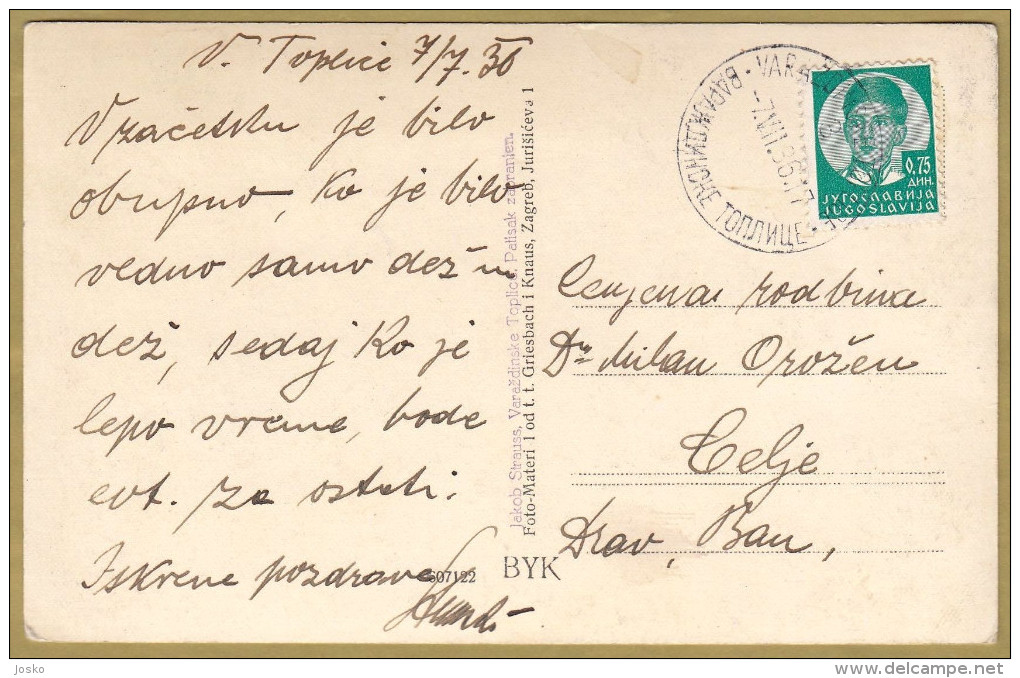 V. Toplice 7/7. 36
V začetku je bilo
obupno, ko je bilo
vedno samo dež in
dež, sedaj ko je
lepo vreme, bode
evt. za ostati.
Iskrene pozdrave
Jakob Strauss, Varaždinske Toplice. Patisak zabranjen.
Foto-Materi l od t. t. Griesbach i Knaus, Zagreb, Jurišićeva 1
607122
BYK
VARA
-7.VII.36
ТОПЛИЦЕ
0.75
ДИН.
ЈУГОСЛАВИЈА
JUGOSLAVIJA
Cenjena rodbina
Dr Milan Orožen
Celje
Drav. Ban.
Josko
delcampe.net